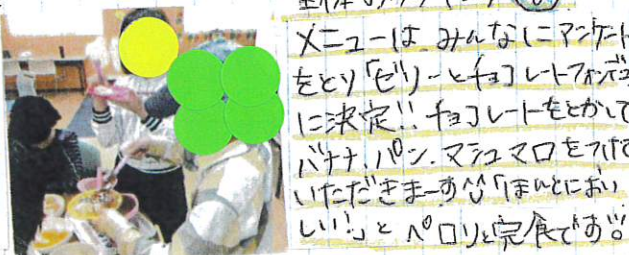 メニューは、みんなにアンケート
をとり「ゼリーとチョコレートフォンデュ」
に決定!! チョコレートをとかして
バナナ、パン、マシュマロをつけて
いただきまーす 「ほんとにおい
しい!」とペロリと完食です